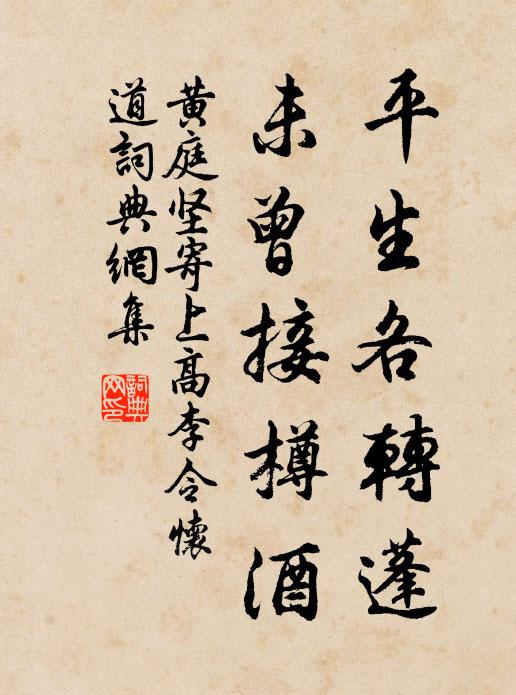 平生各轉蓬
未曾接樽酒
黄庭坚寄上高李令懷
道詞典網集
詞典网印